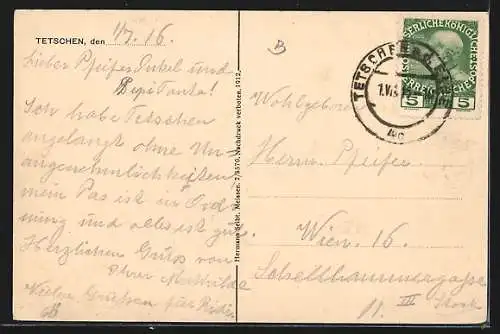 TETSCHEN, den 1/7. 16.
Lieber Pfeifer Onkel und
Pepi Tante!
Ich habe Tetschen
angelangt ohne Un-
angenehmlichkeiten
mein Pas ist in Ord
nung und alles ist gut.
Herzlichen Gruss von
Ihrer Mathilde
Viele Grüssen für
Hermann Seibt, Meissen, 2/5570, Nachdruck verboten, 1912.
B
Wohlgeboren
Herrn Pfeifer
Wien. 16.
Schellhammergasse
11. III Stock
KAISERLICHE KÖNIGLICHE
ÖSTERREICHISCHE POST
5 5
TETSCHEN